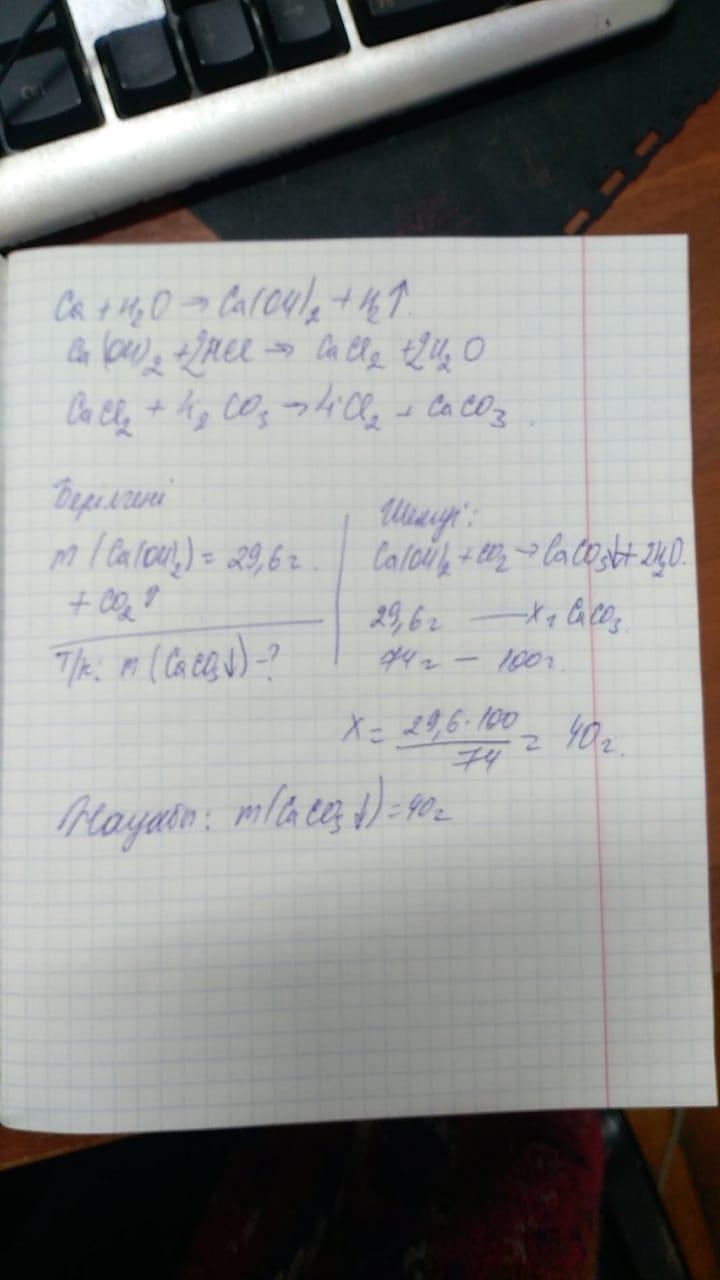 Ca + H₂O → Ca(OH)₂ + H₂↑
Ca(OH)₂ + 2HCl → CaCl₂ + 2H₂O
CaCl₂ + H₂CO₃ → HCl₂ + CaCO₃
Берілгені
m (Ca(OH)₂) = 29,6 г.
+ CO₂↑
Т/к: m (CaCO₃↓) - ?
Шешуі:
Ca(OH)₂ + CO₂ → CaCO₃↓ + 2H₂O.
29,6 г — x г CaCO₃.
74 г — 100 г.
X = 29,6 · 100 / 74 = 40 г.
Жауабы: m(CaCO₃↓) = 40 г